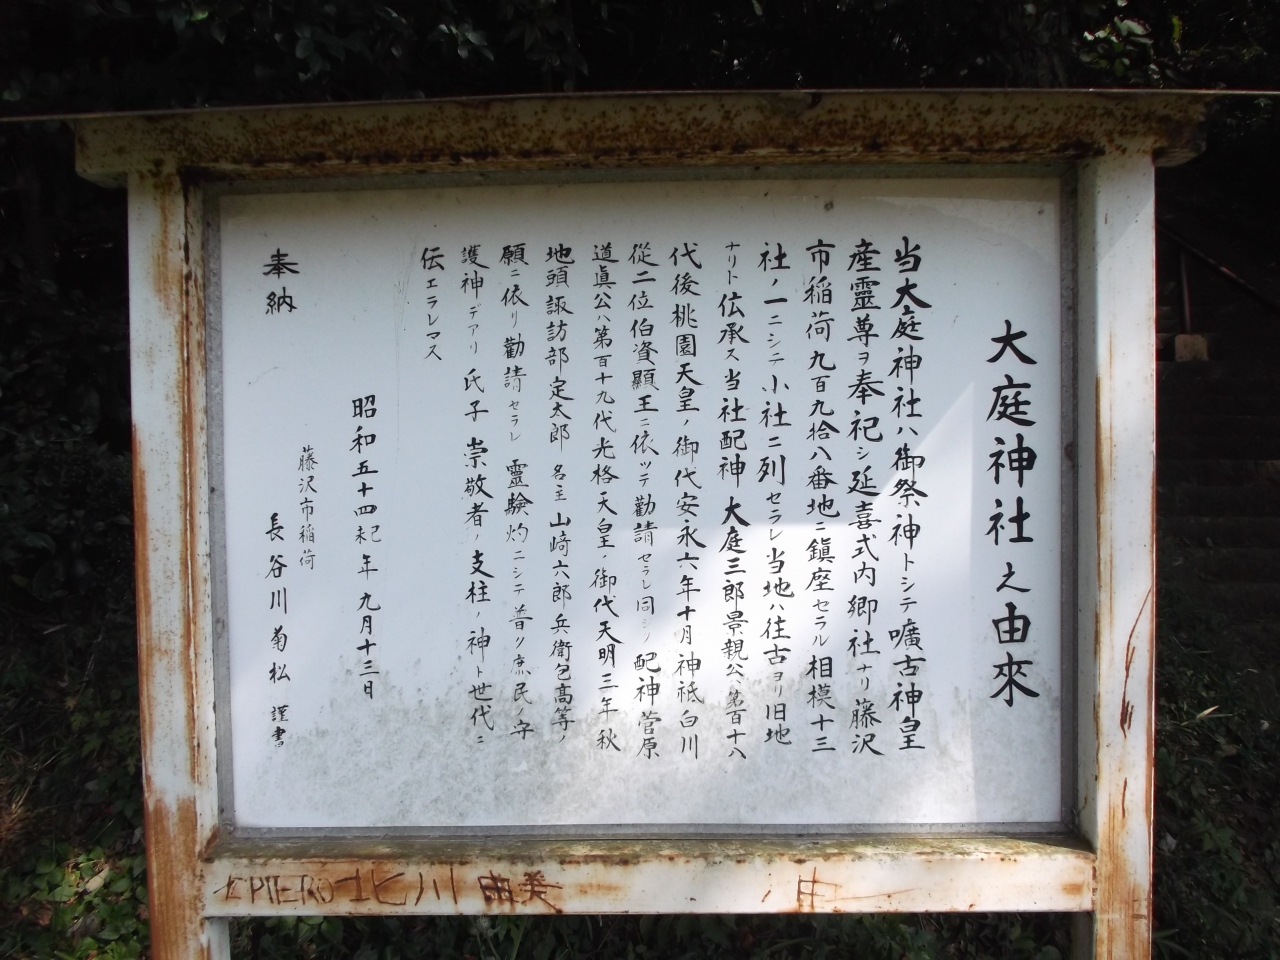 大庭神社之由來
当大庭神社ハ御祭神トシテ嚝古神皇
産靈尊ヲ奉祀シ延喜式内郷社ナリ藤沢
市稲荷九百九拾八番地ニ鎭座セラル相模十三
社ノ一ニシテ小社ニ列セラレ当地ハ往古ヨリ旧地
ナリト伝承ス当社配神大庭三郎景親公ハ第百十八
代後桃園天皇ノ御代安永六年十月神祇白川
従二位伯資顯王ニ依ツテ勧請セラレ同ジク配神菅原
道眞公ハ第百十九代光格天皇ノ御代天明三年秋
地頭諏訪部定太郎 名主 山崎六郎兵衛包高等ノ
願ニ依リ勸請セラレ 靈験灼ニシテ普ク庶民ノ守
護神デアリ氏子崇敬者ノ支柱ノ神ト世代ニ
伝エラレマス
昭和五十四年九月十三日
藤沢市稲荷
奉納 長谷川菊松 謹書
北川